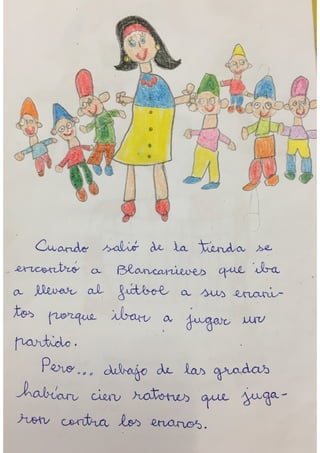 Cuando salió de la tienda se
encontró a Blancanieves que iba
a llevar al fútbol a sus enani-
tos porque iban a jugar un
partido.
Pero... debajo de las gradas
habían cien ratones que juga-
ron contra los enanos.